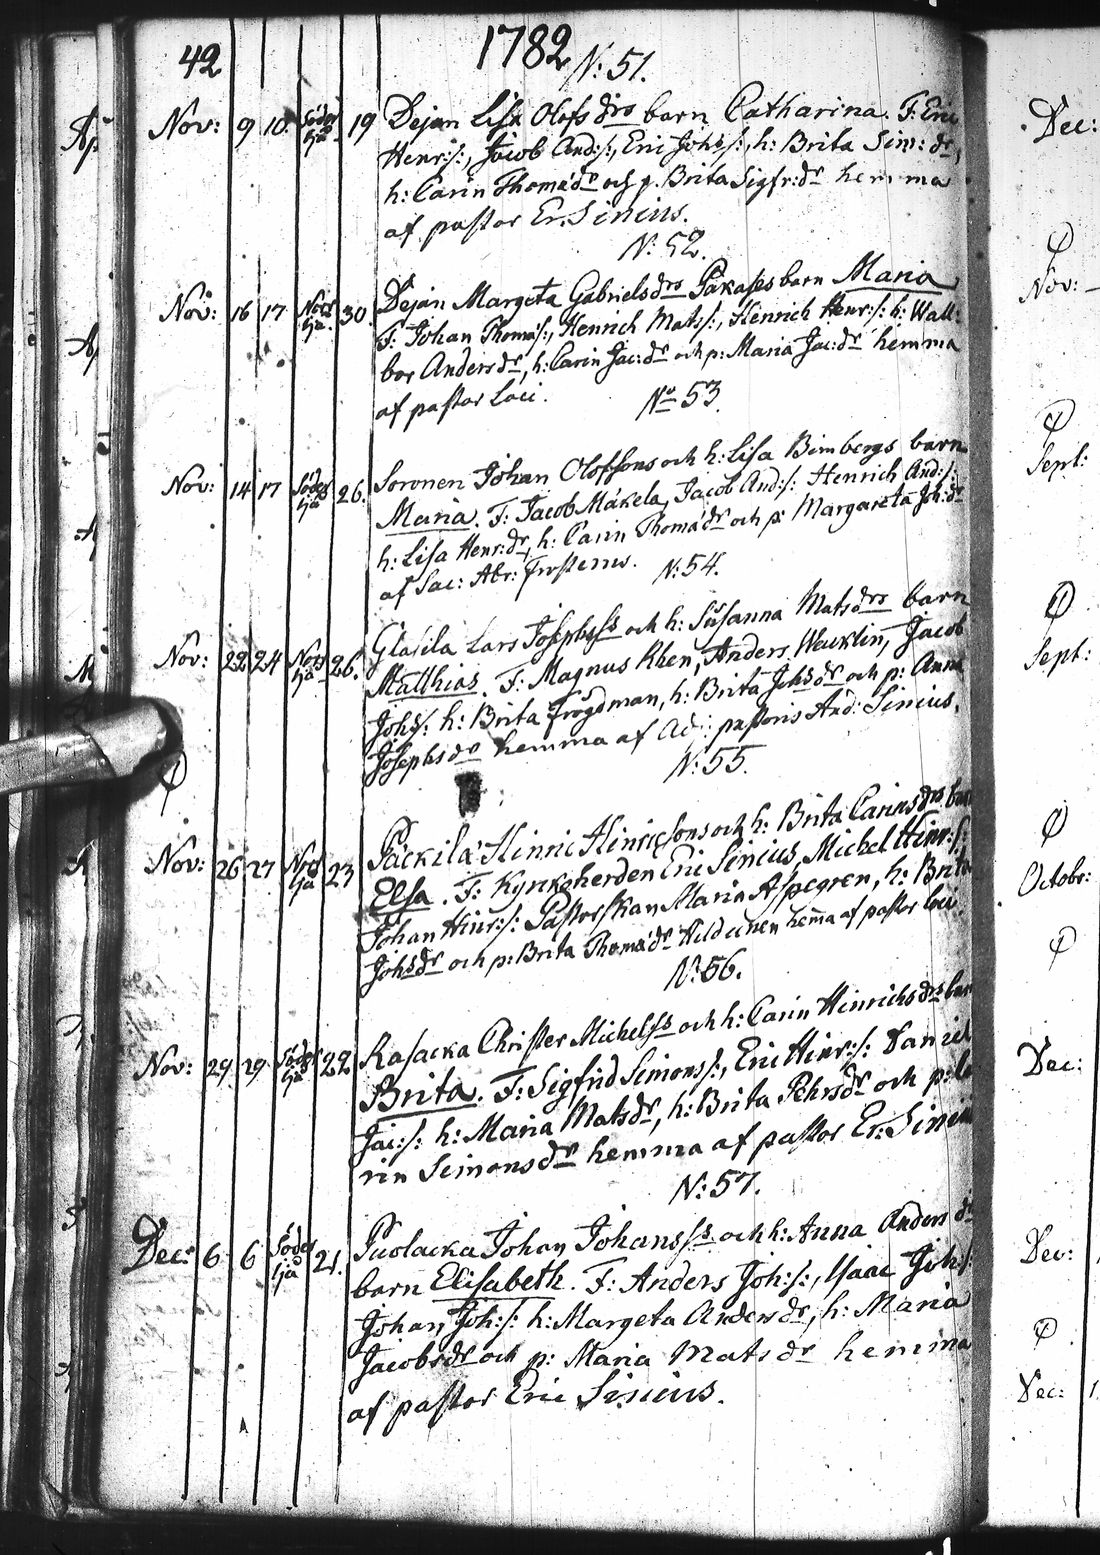 42 1782 N: 51.
Nov: 9 10 Söder sjä 19 Dejan Lisa Olofs drs barn Catharina. F: Eric
Henr:/:, Jacob And:/:, Eric Joh:/:, h: Brita Sim: dr,
h: Carin Thomædr och p. Brita Sigfr:dr hemma
af pastor Er. Sinius.
N: 52.
Nov: 16 17 Norr sjä 30. Dejan Margeta Gabrielsdrs barn Maria
F: Johan Thomæ/:, Henrich Mats/:, Henrich Henr:/: h: Wall:
bor Andersdr, h: Carin Jac:dr och p: Maria Jac:dr hemma
af pastor Loci.
No 53.
Nov: 14 17 Söder sjä 26. Soronen Johan Olofsons och h: Lisa Bimbergs barn
Maria. F: Jacob Mäkelä, Jacob And:/: Henrich And:/:
h: Lisa Henr:dr, h: Carin Thomædr och p: Margareta Joh:dr
af Sac: Abr: Frosterus.
N: 54.
Nov: 22 24 Norr sjä 26. Lars Josephss och h: Susanna Matsdrs barn
Matthias. F: Magnus Rhen, Anders, Jacob
Johs/: h: Brita Frogdman, h: Brita Johsdr och p: Anna
Josephsdr hemma af Adj: pastoris And: Sinius.
N: 55.
Nov: 26 27 Nor sjä 23 Päckilä Hinric Hinricsons och h: Brita Carins drs barn
Elsa. F: Kyrckoherden Eric Sinius, Michel Hinr:/:
Johan Hinr:/: Pastorskan Maria Aspegren, h: Brita
Johsdr och p: Brita Thomædr hemma af pastor loci.
N: 56.
Nov: 29. 29 Söder sjä 22 Rasacka Christer Michelss och h: Carin Hinrichs drs barn
Brita. F: Sigfrid Simons/:, Eric Hinr:/: Daniel
Jac:/: h: Maria Matsdr, h: Brita Pehrsdr och p: Ca
rin Simonsdr hemma af pastor Er: Sinius
N: 57.
Dec: 6 6 Söder sjä 21. Puolacka Johan Johanss och h: Anna Anders dr
barn Elisabeth. F: Anders Joh:/:, Isaac Joh:/:
Johan Joh:/: h: Margeta Andersdr, h: Maria
Jacobsdr och p: Maria Mats dr hemma
af pastor Eric Sinius.
Dec:
Nov:
Sept:
Sept:
Octobr:
Dec:
Dec:
Dec: